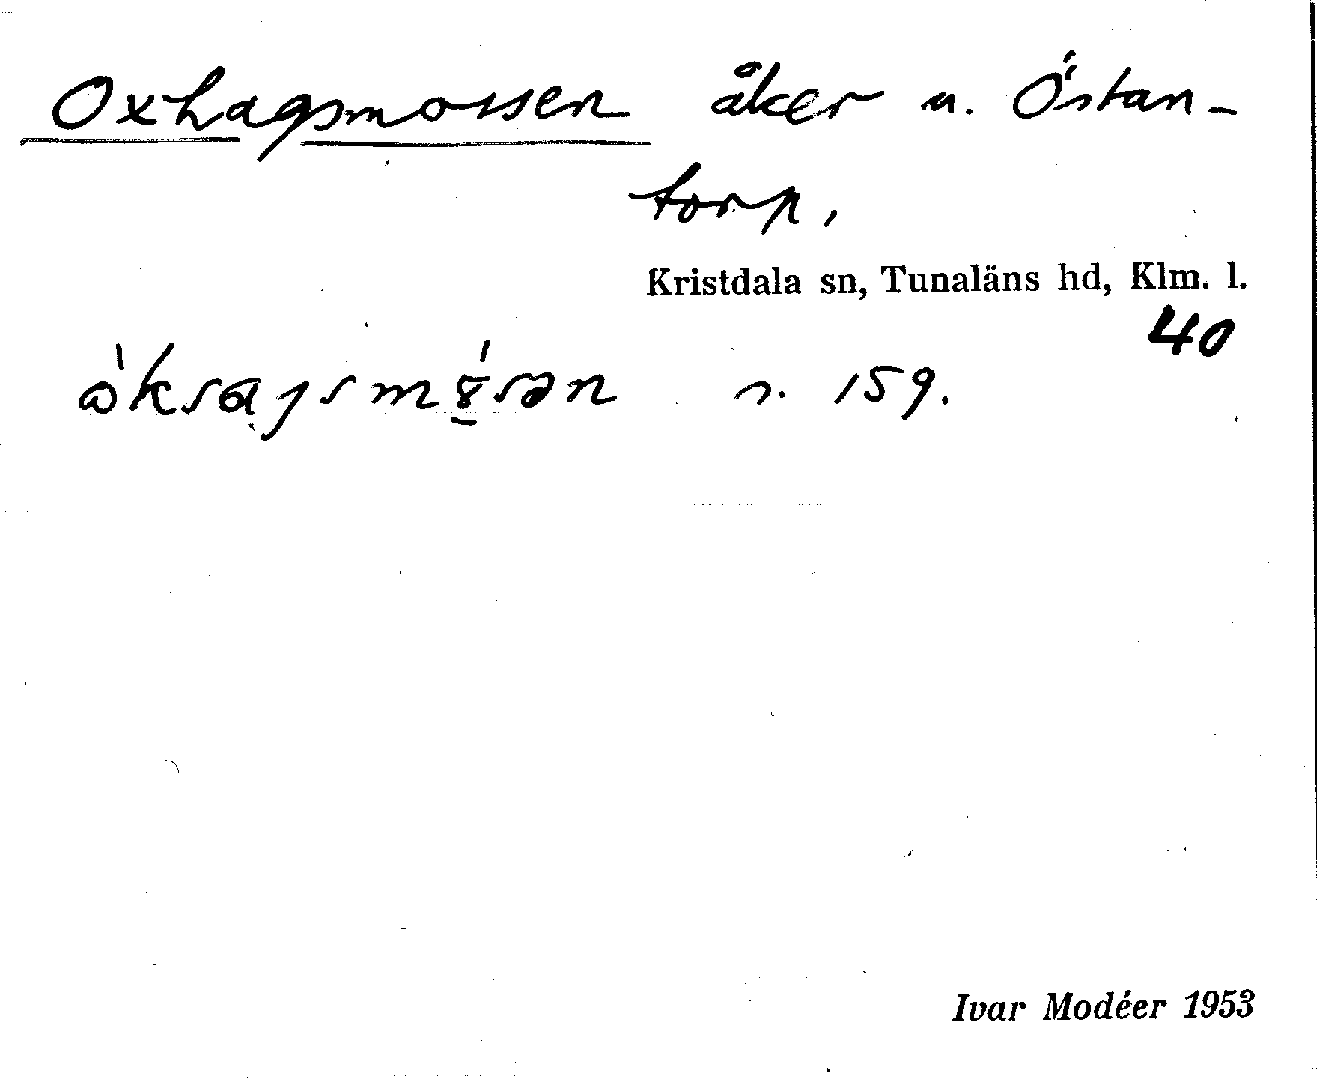 Oxhagsmossen åker u. Östan-
torp.
Kristdala sn, Tunaläns hd, Klm. l.
40
n. 159.
Ivar Modéer 1953